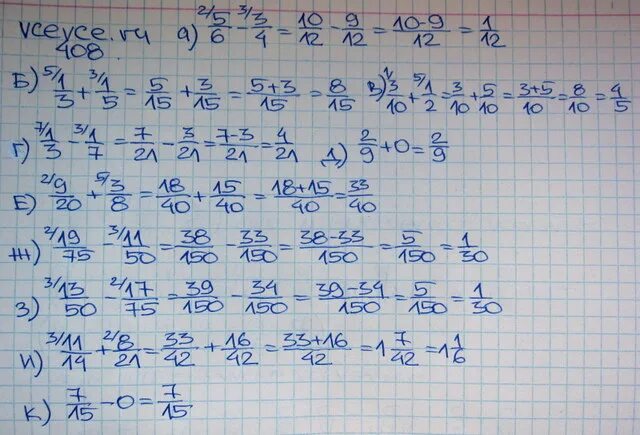 vceyce.ru а) ²/5/6 - ³/3/4 = 10/12 - 9/12 = 10-9/12 = 1/12
408
Б) ⁵/1/3 + ³/1/5 = 5/15 + 3/15 = 5+3/15 = 8/15 В) ¹/3/10 + ⁵/1/2 = 3/10 + 5/10 = 3+5/10 = 8/10 = 4/5
Г) ⁷/1/3 - ³/1/7 = 7/21 - 3/21 = 7-3/21 = 4/21 Д) 2/9 + 0 = 2/9
Е) ²/9/20 + ⁵/3/8 = 18/40 + 15/40 = 18+15/40 = 33/40
Ж) ²/19/75 - ³/11/50 = 38/150 - 33/150 = 38-33/150 = 5/150 = 1/30
З) ³/13/50 - ²/17/75 = 39/150 - 34/150 = 39-34/150 = 5/150 = 1/30
И) ³/11/14 + ²/8/21 = 33/42 + 16/42 = 33+16/42 = 1 7/42 = 1 1/6
К) 7/15 - 0 = 7/15